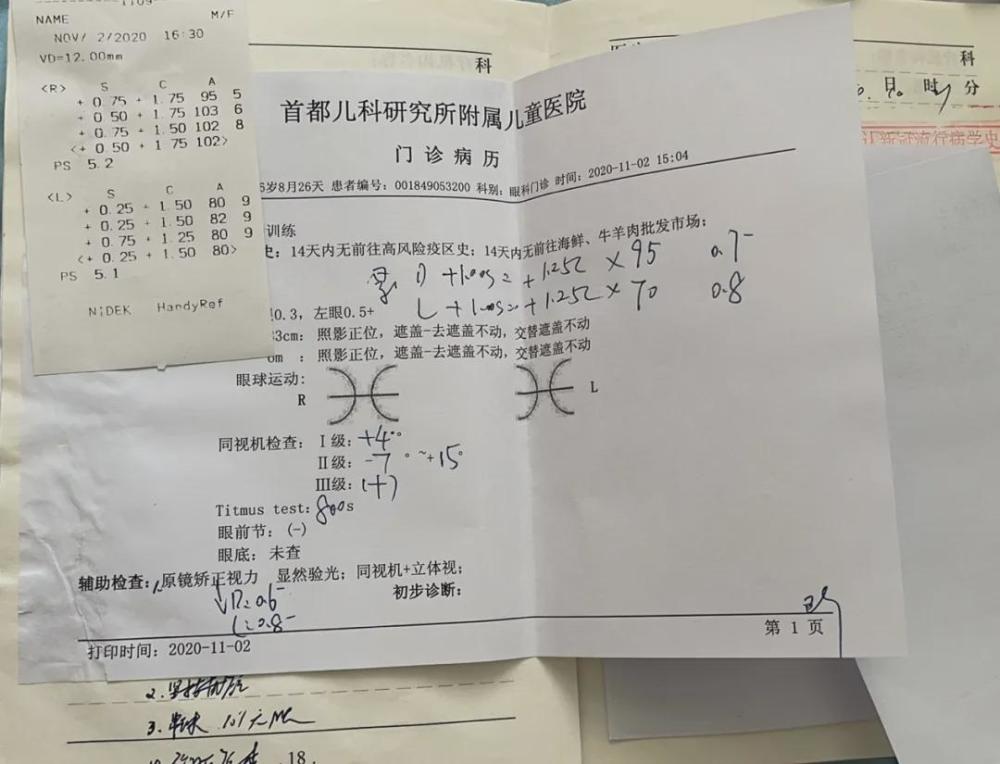 NAME M/F
NOV/ 2/2020 16:30
VD=12.00mm
<R> S C A
+ 0.75 + 1.75 95 5
+ 0.50 + 1.75 103 6
+ 0.75 + 1.50 102 8
<+ 0.50 + 1.75 102>
PS 5.2
<L> S C A
+ 0.25 + 1.50 80 9
+ 0.25 + 1.50 82 9
+ 0.75 + 1.25 80 9
<+ 0.25 + 1.50 80>
PS 5.1
NIDEK HandyRef
科
科
时 分
首都儿科研究所附属儿童医院
门诊病历
6岁8月26天 患者编号: 001849053200 科别: 眼科门诊 时间: 2020-11-02 15:04
训练
史: 14天内无前往高风险疫区史; 14天内无前往海鲜、牛羊肉批发市场;
+1.00S +1.25C × 95 0.7-
L +1.00S +1.25C × 70 0.8
0.3, 左眼0.5+
33cm: 照影正位, 遮盖-去遮盖不动, 交替遮盖不动
6m : 照影正位, 遮盖-去遮盖不动, 交替遮盖不动
眼球运动:
R L
同视机检查: Ⅰ级: +4°
Ⅱ级: -7° ~ +15°
Ⅲ级: (+)
Titmus test: 800s
眼前节: (-)
眼底: 未查
辅助检查: 原镜矫正视力 显然验光; 同视机+立体视;
初步诊断:
R=0.6-
L=0.8-
第 1 页
打印时间: 2020-11-02
2.
3.
18.